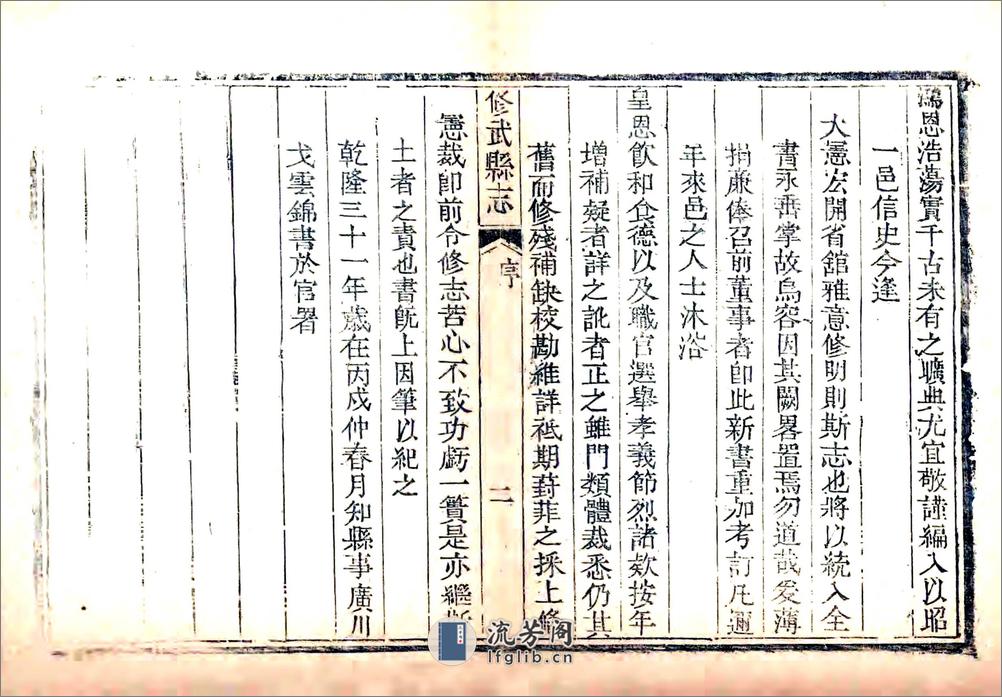 鴻恩浩蕩實千古未有之曠典尤宜敬謹編入以昭
一邑信史今逢
大憲宏開省舘雅意修明則斯志也將以統入全
書永垂掌故烏容因其闕畧置焉勿道哉爰薄
捐亷俸召前董事者卽此新書重加考訂凡邇
年來邑之人士沐浴
皇恩飮和食德以及職官選舉孝義節烈諸欵按年
增補疑者詳之訛者正之雖門類體裁悉仍其
舊而修殘補缺校勘維詳祗期葑菲之採上
修武縣志 序 二
憲裁卽前令修志苦心不致功虧一簣是亦繼
土者之責也書旣上因筆以紀之
乾隆三十一年歲在丙戍仲春月知縣事廣川
戈雲錦書於官署
流芳阁
lfglib.cn